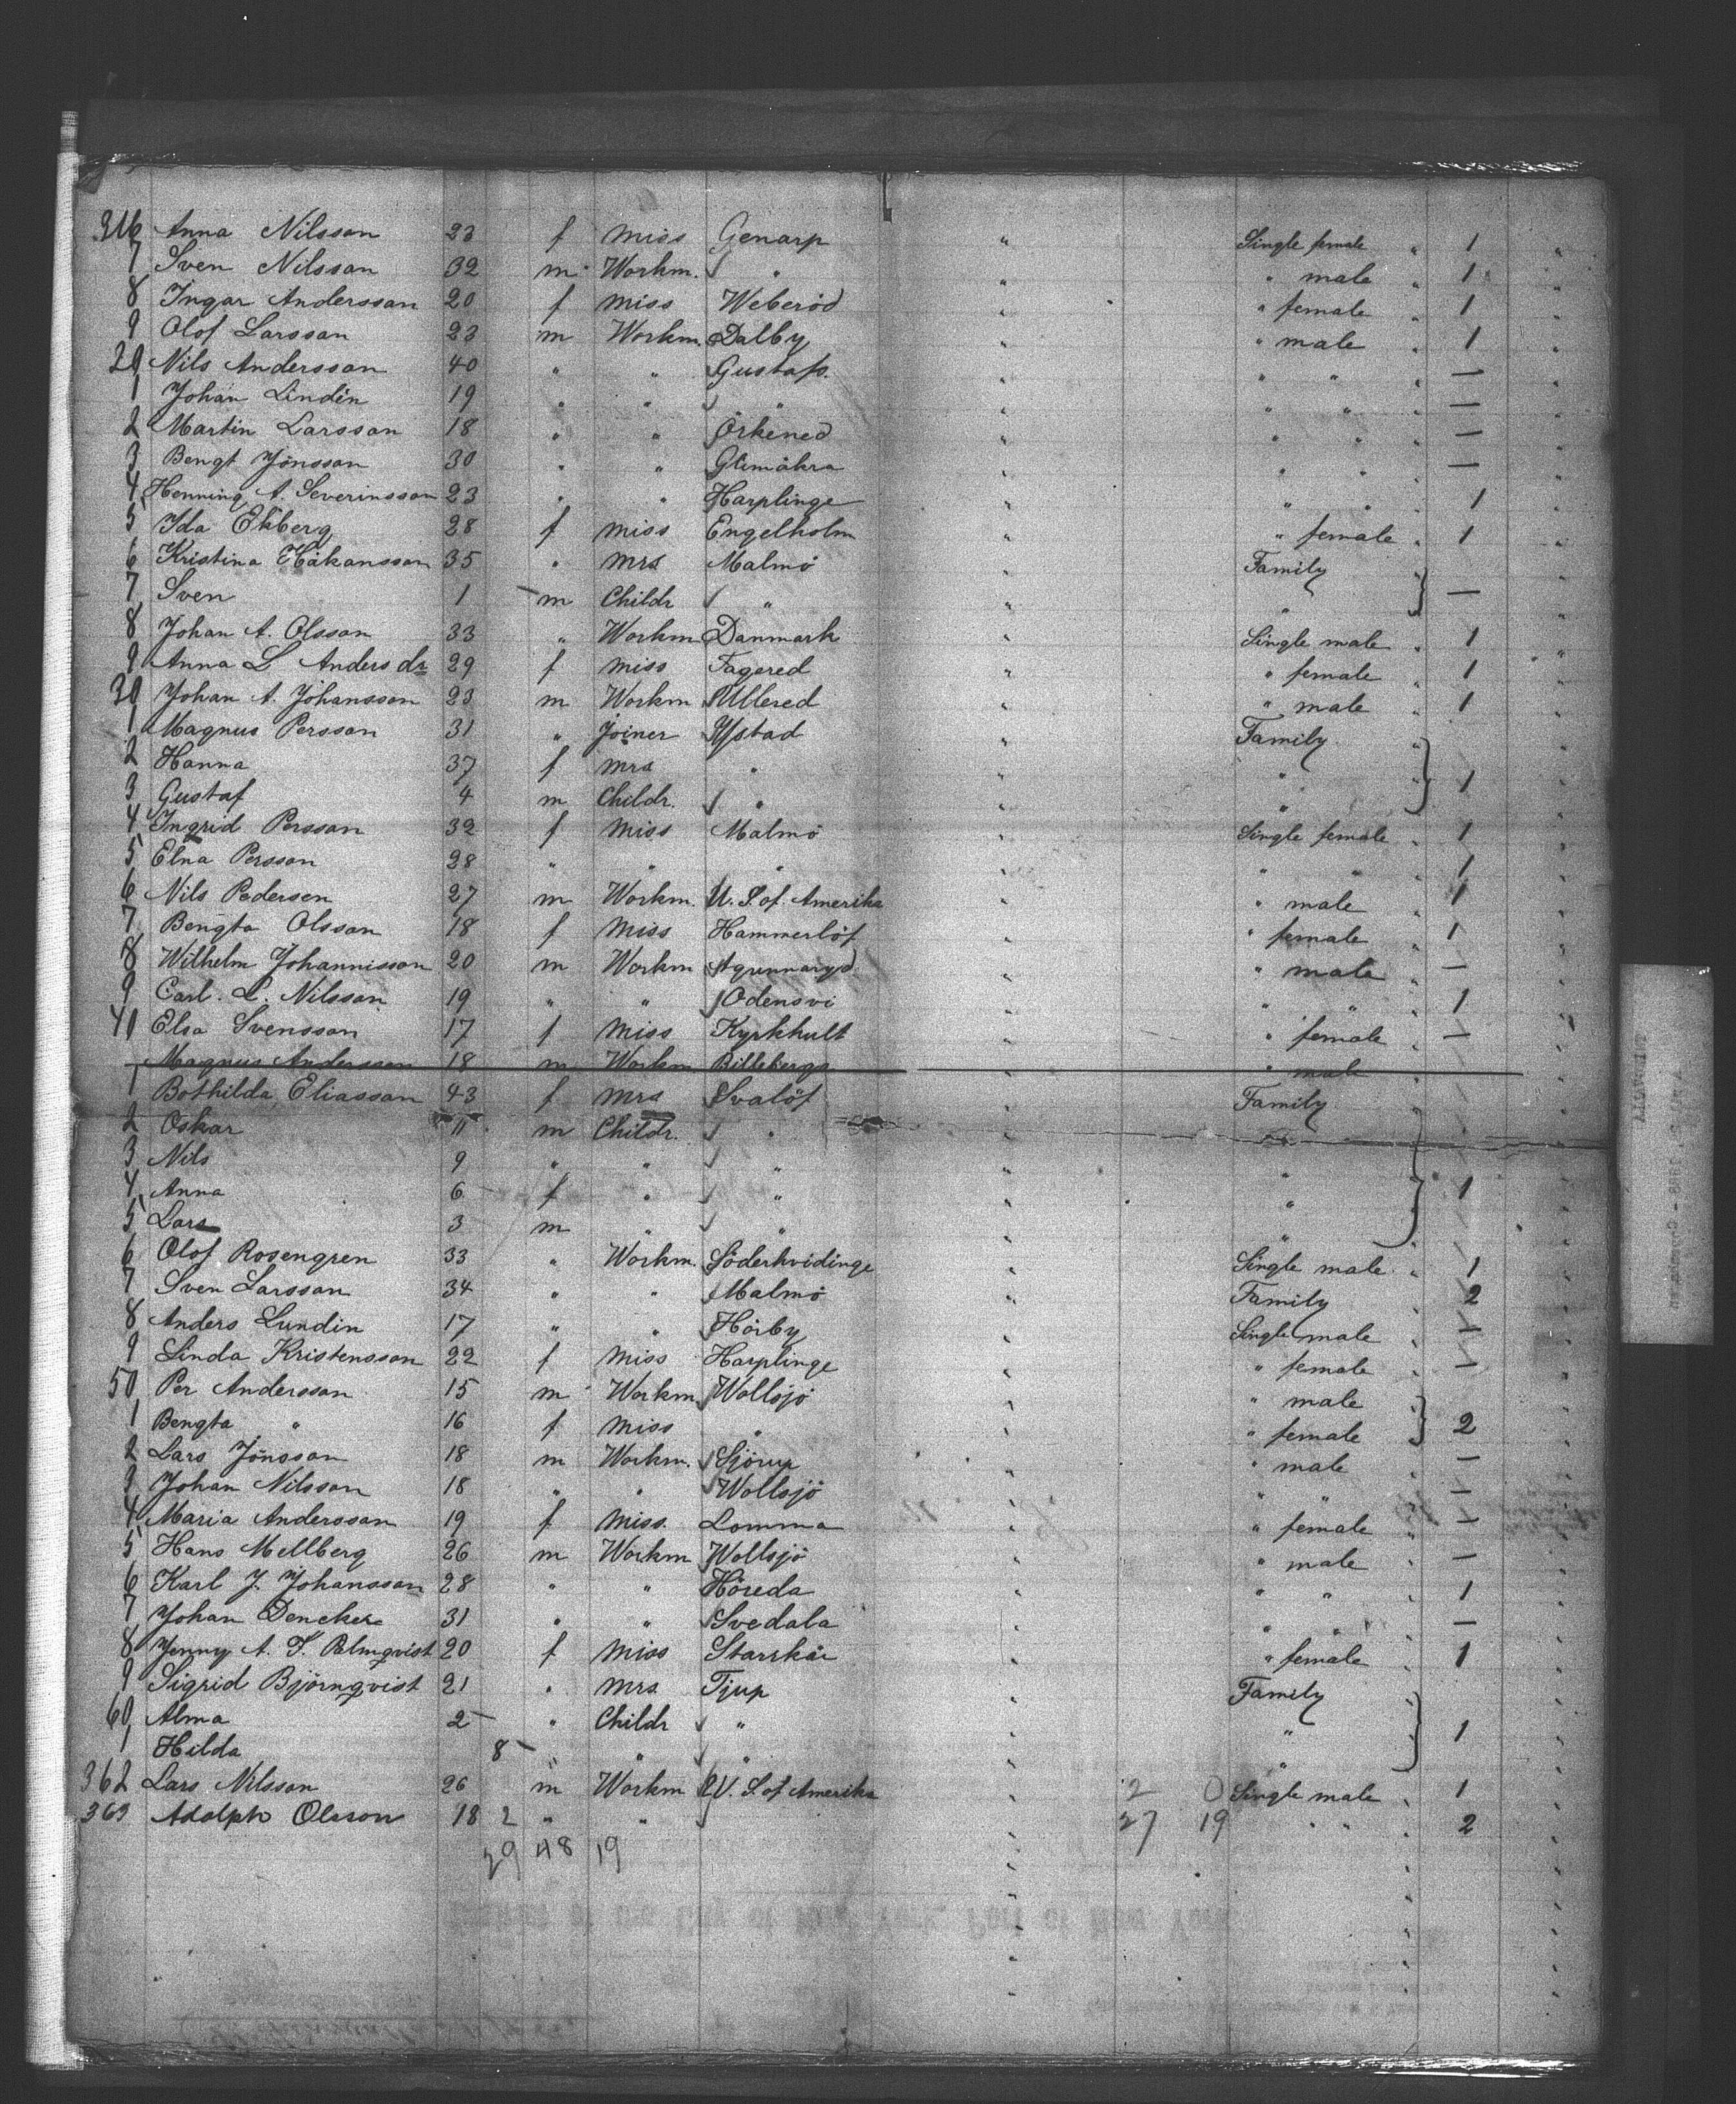 316 Anna Nilsson 23 f Miss Genarp " Single female " 1 "
7 Sven Nilsson 32 m Workm. " " " male " 1 "
8 Ingar Andersson 20 f Miss Weberöd " " female " 1 "
9 Olof Larsson 23 m Workm. Dalby " " male " 1 "
20 Nils Andersson 40 " " Gustafs. " " " " — "
1 Johan Lindén 19 " " " " " " " — "
2 Martin Larsson 18 " " Örkened " " " " — "
3 Bengt Jönsson 30 " " Glimåkra " " " " — "
4 Henning A. Severinsson 23 " " Harplinge " " " " 1 "
5 Ida Ekberg 28 f Miss Engelholm " " female " 1 "
6 Kristina Håkansson 35 " Mrs Malmö " Family "
7 Sven 1 m Childr " " " } — "
8 Johan A. Olsson 33 " Workm Danmark " Single male " 1 "
9 Anna L Andersdr 29 f Miss Fagered " " female " 1 "
30 Johan A. Johansson 23 m Workm Ullered " " male " 1 "
1 Magnus Persson 31 " Joiner Ystad " Family "
2 Hanna 37 f Mrs " " " } 1 "
3 Gustaf 4 m Childr. " " " "
4 Ingrid Persson 32 f Miss Malmö " Single female " 1 "
5 Elna Persson 28 " " " " " " " 1 "
6 Nils Pedersen 27 m Workm. U. S. of Amerika " " male " 1 "
7 Bengta Olsson 18 f Miss Hammerlöf " " female " 1 "
8 Wilhelm Johannisson 20 m Workm Agunnaryd " " male " — "
9 Carl. L. Nilsson 19 " " Odensvi " " " " 1 "
40 Elsa Svensson 17 f Miss Kyrkhult " " female " — "
Magnus Andersson 18 m Workm Billeberga " " male
1 Bothilda Eliasson 43 f Mrs Svalöf Family "
2 Oskar 11 m Childr. " " " "
3 Nils 9 " " " " " "
4 Anna 6 f " " " " } 1 "
5 Lars 3 m " " " " "
6 Olof Rosengren 33 " Workm. Söderhvidinge " Single male " 1 "
7 Sven Larsson 34 " " Malmö " Family " 2 "
8 Anders Lundin 17 " " Hörby " Single male " — "
9 Linda Kristensson 22 f Miss Harplinge " " female " — "
50 Per Andersson 15 m Workm. Wollsjö " " male
1 Bengta " 16 f Miss " " " female } 2 "
2 Lars Jönsson 18 m Workm. Sjörup " " male " — "
3 Johan Nilsson 18 " " Wollsjö " " " " — "
4 Maria Andersson 19 f Miss. Lomma " " female " — "
5 Hans Mellberg 26 m Workm Wollsjö " " male " — "
6 Karl J. Johansson 28 " " Höreda " " " " 1 "
7 Johan Dencker 31 " " Svedala " " " " — "
8 Jenny A. F. Palmqvist 20 f Miss Starrkär " " female " 1 "
9 Sigrid Björnqvist 21 " Mrs Tjup " Family "
60 Alma 2 " Childr " " " } 1 "
1 Hilda 8 " " " " " "
362 Lars Nilsson 26 m Workm U. S. of Amerika " 2 0 Single male " 1 "
363 Adolph Olsson 18 2 " " " 27 19 " " " 2 "
29 48 19